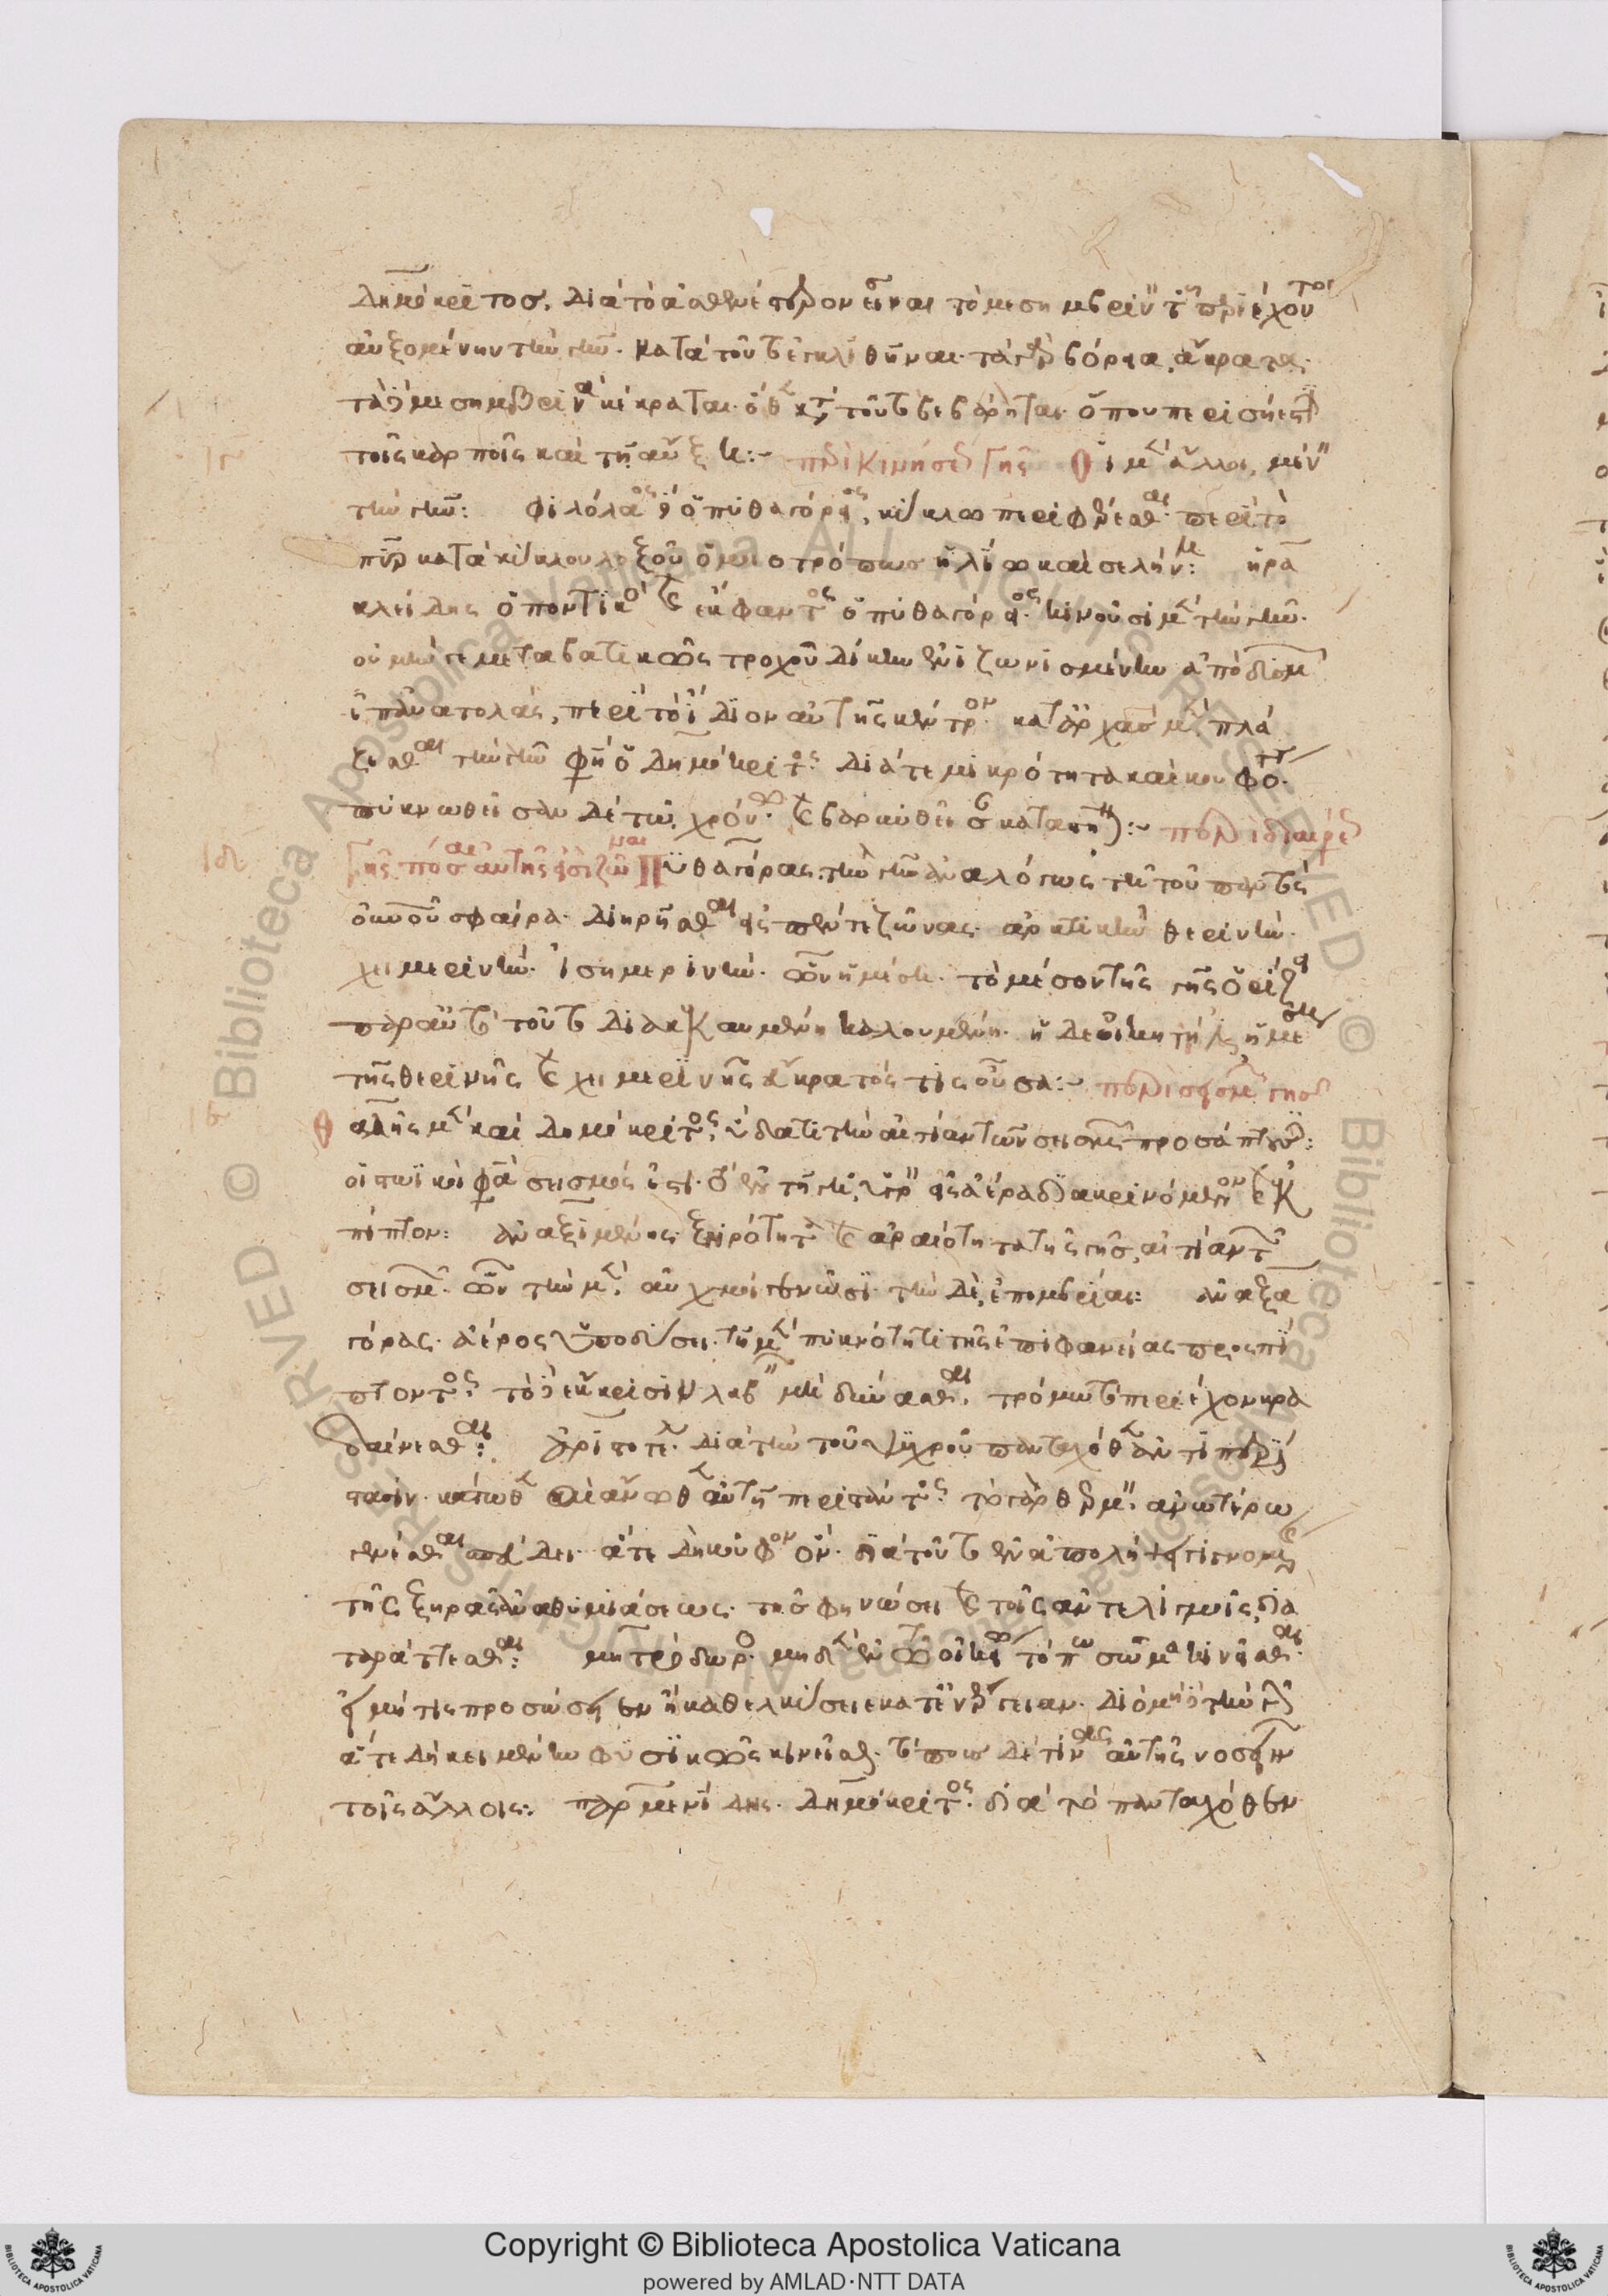 Δημόκριτος, διὰ τὸ ἀσθενέστερον εἶναι τὸ μεσημβρινὸν τοῦ περιέχοντος
αὐξομένην τὴν γῆν. κατὰ τοῦτο ἐγκλιθῆναι. τὰ γὰρ βόρεια, ἄκρατα.
τὰ δὲ μεσημβρινὰ κέκραται. ὅθεν κατὰ τοῦτο βεβάρηται. ὅπου περισσή ἐστι
τοῖς καρποῖς καὶ τῇ αὔξῃ:- περὶ κινήσεως γῆς Οἱ μὲν ἄλλοι, μένειν
ιγ
τὴν γῆν: Φιλόλαος δὲ ὁ πυθαγόρειος, κύκλῳ περιφέρεσθαι περὶ τὸ
πῦρ κατὰ κύκλου λοξοῦ ὁμοιοτρόπως ἡλίῳ καὶ σελήνῃ: ἡρα
κλείδης ὁ ποντικὸς καὶ ἔκφαντος ὁ πυθαγόρειος κινοῦσι μὲν τὴν γῆν.
οὐ μήν γε μεταβατικῶς τροχοῦ δίκην ἐνιζωνισμένην ἀπὸ δυσμῶν
ἐπ' ἀνατολάς, περὶ τὸ ἴδιον αὐτῆς κέντρον. κατ' ἀρχὰς μὲν πλά
ζεσθαι τὴν γῆν φησὶν ὁ Δημόκριτος διά τε μικρότητα καὶ κουφότητα.
πυκνωθεῖσαν δὲ τῷ χρόνῳ καὶ βαρυνθεῖσαν καταστῆναι:- περὶ διαιρέσεως
ιδ
γῆς πόσαι αὐτῆς εἰσι ζῶναι Πυθαγόρας τὴν γῆν ἀναλόγως τῇ τοῦ παντὸς
οὐνοῦ σφαίρᾳ. διῃρῆσθαι εἰς πέντε ζώνας. ἀρκτικὴν θερινὴν.
χειμερινὴν. ἰσημερινὴν. ὧν ἡ μέση. τὸ μέσον τῆς γῆς ὁρίζει
παρ' αὐτὸ τοῦτο διακεκαυμένη καλουμένη. ἡ δὲ οἰκητή ἐστιν ἡ μέση
τῆς θερινῆς καὶ χειμερινῆς εὔκρατός τις οὖσα:- περὶ σεισμῶν γῆς
ιε
Θαλῆς μὲν καὶ Δημόκριτος ὕδατι τὴν αἰτίαν τῶν σεισμῶν προσάπτουσιν:
οἱ στωϊκοί φασι σεισμός ἐστι. τὸ ἐν τῇ γῇ ὑγρὸν εἰς ἀέρα διακρινόμενον καὶ ἐκ
πίπτον: ἀναξιμένης ξηρότητα καὶ ἀραιότητα τῆς γῆς, αἰτίαν τῶν
σεισμῶν. ὧν τὴν μὲν αὐχμοὶ γεννῶσι. τὴν δὲ, ἐπομβρίαι: ἀναξα
γόρας. ἀέρος ὑποδύσει. τῇ μὲν πυκνότητι τῆς ἐπιφανείας προσπί
πτοντος. τὸ δὲ ἔκκρισιν λαβεῖν μὴ δύνασθαι. τρόμῳ τὸ περιέχον κρα
δαίνεσθαι: ἀριστοτέλης. διὰ τὴν τοῦ ψυχροῦ πανταχόθεν ἀντιπερί
στασιν. κάτωθεν καὶ ἄνωθεν αὐτῇ περιστάντος. τὸ γὰρ θερμὸν ἀνωτέρω
γενέσθαι σπεύδει. ἅτε δὴ κοῦφον ὄν. διὰ τοῦτο ἐν ἀπολήψει γινομένης
τῆς ξηρᾶς ἀναθυμιάσεως. τῇ σφηνώσει καὶ τοῖς ἀντελιγμοῖς, δια
ταράττεσθαι: μητρόδωρος μηδὲν ἐν τῷ οἰκείῳ τόπῳ σῶμα κινεῖσθαι.
εἰ μή τις προσώσειεν ἢ καθελκύσειε κατ' ἐνέργειαν. διὸ μηδὲ τὴν γῆν
ἅτε δὴ κειμένην φυσικῶς κινεῖσθαι. τόπους δέ τινας αὐτῆς νοσεῖν
τοῖς ἄλλοις: παρμενίδης. Δημόκριτος. διὰ τὸ πανταχόθεν
Copyright © Biblioteca Apostolica Vaticana
powered by AMLAD·NTT DATA